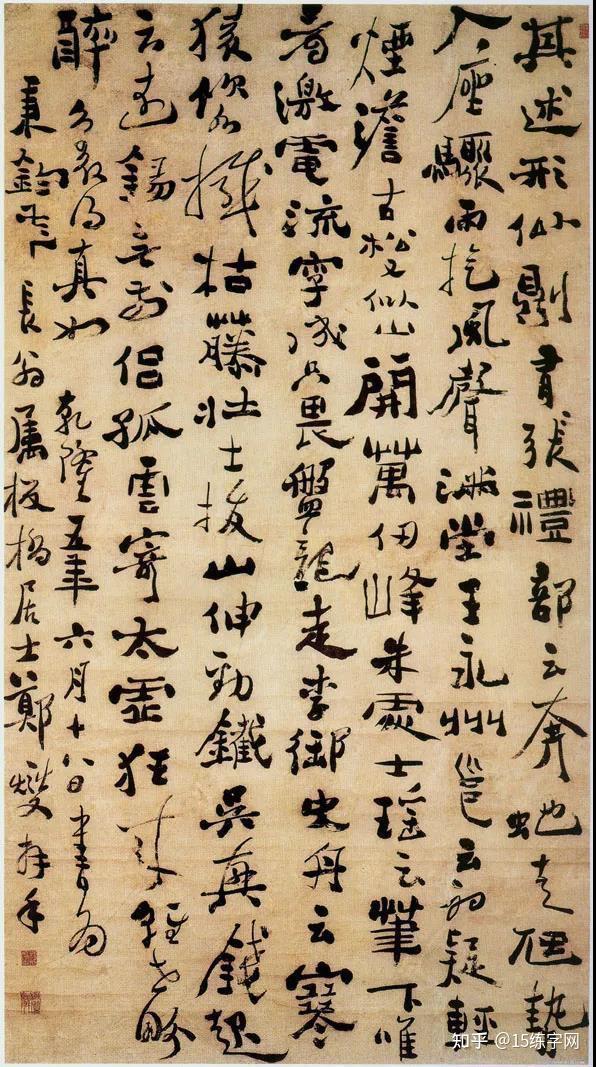 其述形似則有張澧部云奔蛇走虺勢
入座驟雨旋風聲滿堂王永州邕云初疑輕
煙澹古松又似山開萬仞峰朱處士瑶云筆下唯
看激電流字成只畏盤龍走李御史舟云寒
猿飲水撼枯藤壮士拔山伸勁鐵吳興錢起
云遠錫無前侶孤雲寄太虛狂來輕世界
醉得真如 乾隆五年六月十八日書為
秉鈞長翁屬板橋居士鄭燮拜手
知乎 @15练字网